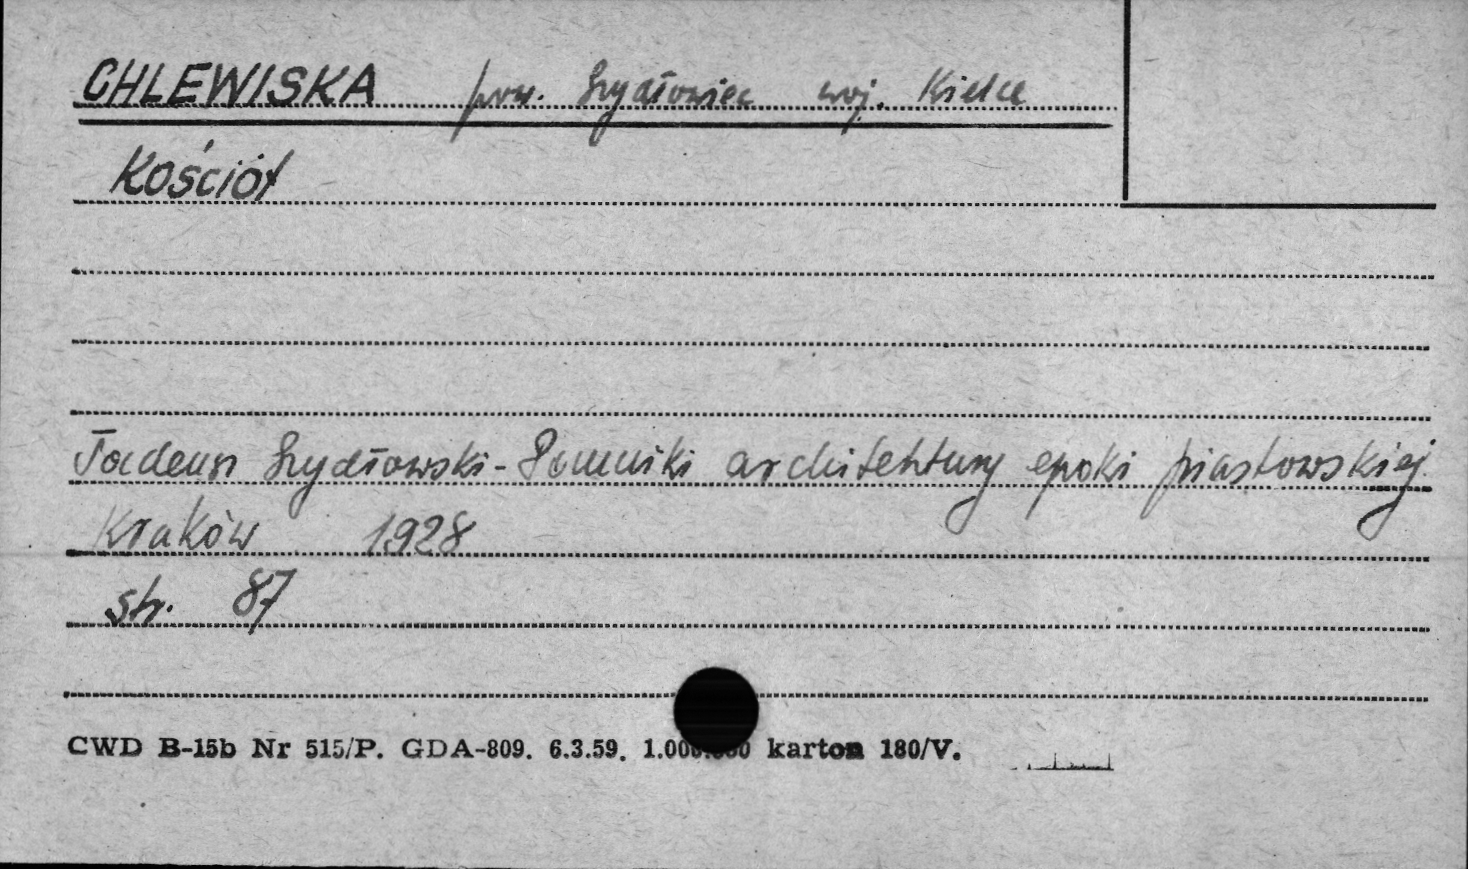 CHLEWISKA pow. Szydłowiec woj. Kielce
Kościół
Tadeusz Szydłowski - Pomniki architektury epoki piastowskiej
Kraków 1928
str. 87
CWD B-15b Nr 515/P. GDA-809. 6.3.59. 1.000.000 karton 180/V.